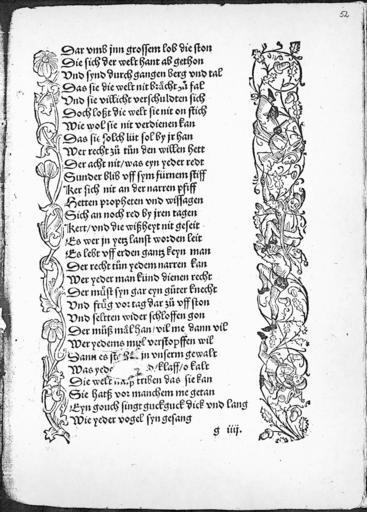 52
Dar vmb jnn grossem lob die ston
Die sich der welt hant ab gethon
Vnd synd durch gangen berg vnd tal
Das sie die welt nit brächt zů fal
Vnd sie villicht verschuldten sich
Doch loßt die welt sie nit on stich
Wie wol sie nit verdienen kan
Das sie solch lüt sol by jr han
Wer recht zů tůn den willen hett
Der acht nit/ was eyn yeder redt
Sunder blib vff sym fürnem stiff
Ker sich nit an der narren pfiff
Hetten propheten vnd wissagen
Sich an noch red by jren tagen
Kert/ vnd die wißheyt nit geseit
Es wer jn yetz lanst worden leit
Es lebt vff erden gantz keyn man
Der recht tün yedem narren kan
Wer yeder man künd dienen recht
Der müst syn gar eyn güter knecht
Vnd früg vor tag dar zů vff ston
Vnd seltten wider schloffen gon
Der müß mäl han/ vil me dann vil
Wer yedems mul verstopffen wil
Dann es jn vnserm gewalt
Was klaff/ kalt
Die welt triben das sie kan
Sie hatß vor manchem me getan
Eyn gouch singt guckguck dick vnd lang
Wie yeder vogel syn gesang
g iiij.